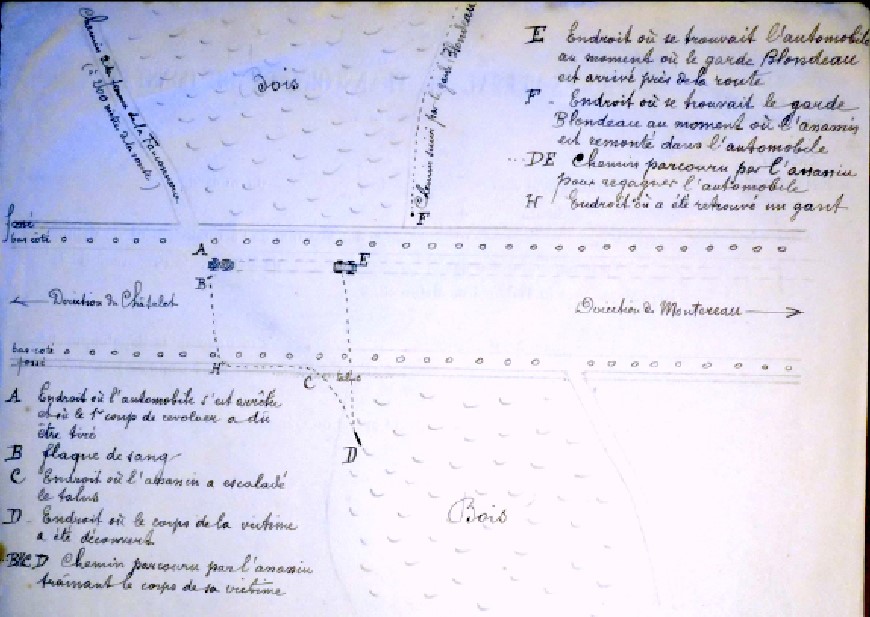 Chemin de la ferme de la Faisanderie
(à 200 mètres de la route)
Bois
Chemin suivi par le garde Blondeau
E Endroit où se trouvait l'automobile
au moment où le garde Blondeau
est arrivé près de la route
F Endroit où se trouvait le garde
Blondeau au moment où l'assassin
est remonté dans l'automobile
DE Chemin parcouru par l'assassin
pour regagner l'automobile
H Endroit où a été retrouvé un gant
F
fossé
bas côté
A
E
B
Direction du Châtelet
Direction de Montereau
bas-coté
fossé
H
C
talus
D
A Endroit où l'automobile s'est arrêtée
et où le 1er coup de revolver a dû
être tiré
B flaque de sang
C Endroit où l'assassin a escaladé
le talus
D Endroit où le corps de la victime
a été découvert
BCD Chemin parcouru par l'assassin
traînant le corps de sa victime
Bois